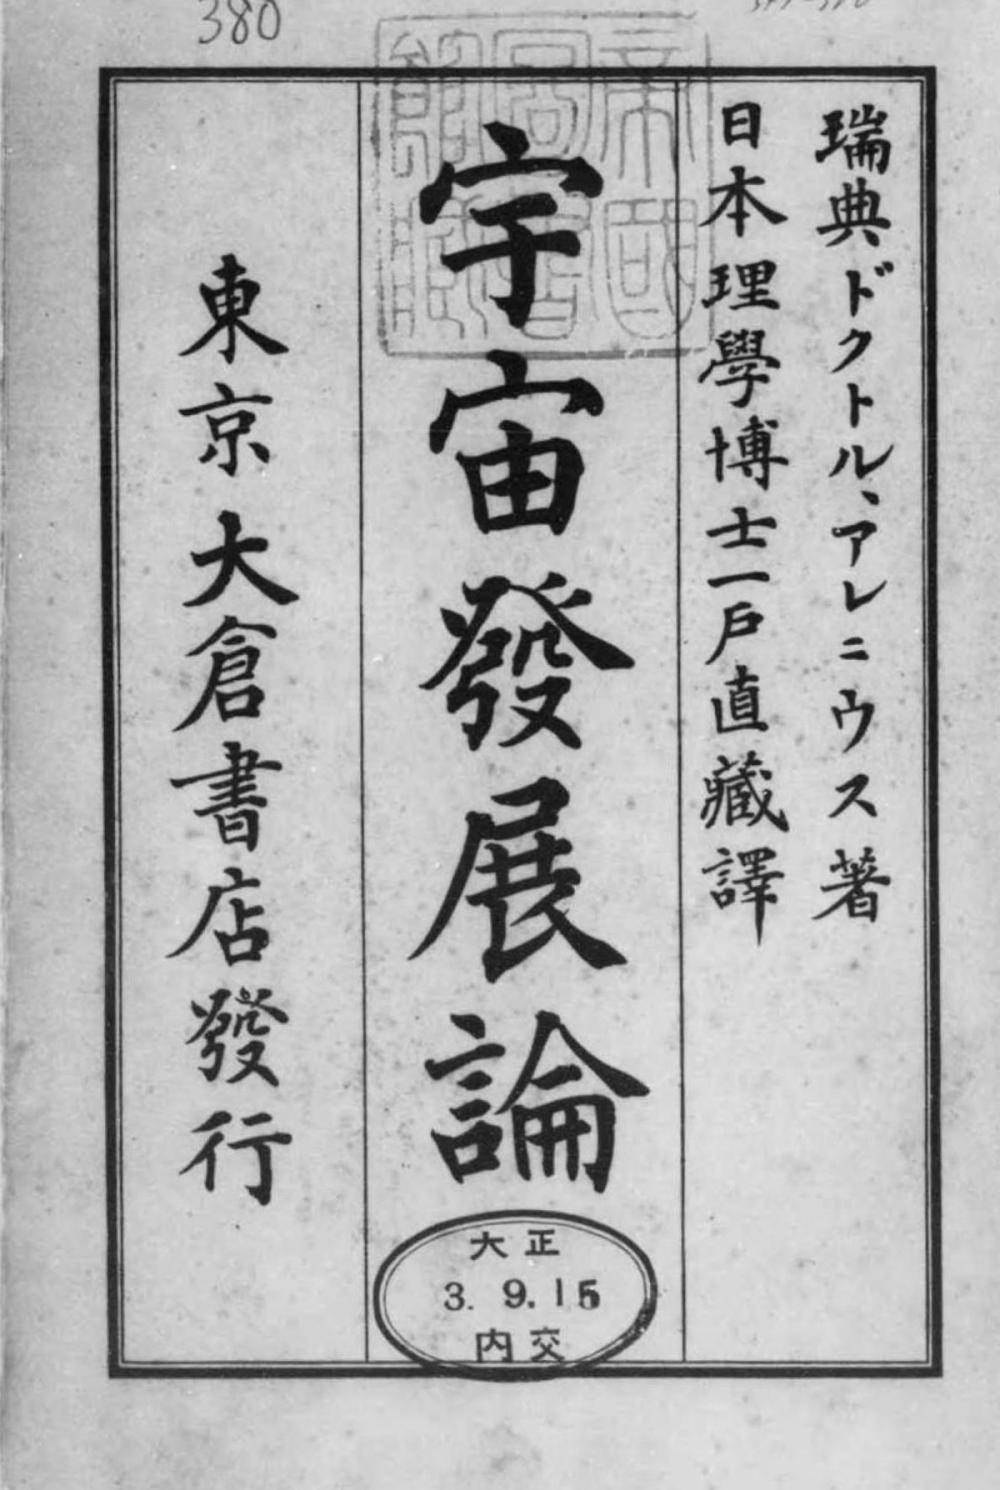 380
帝國圖書館藏
瑞典ドクトル、アレニウス著
日本理學博士一戶直藏譯
宇宙發展論
東京大倉書店發行
大正
3. 9. 15
內交